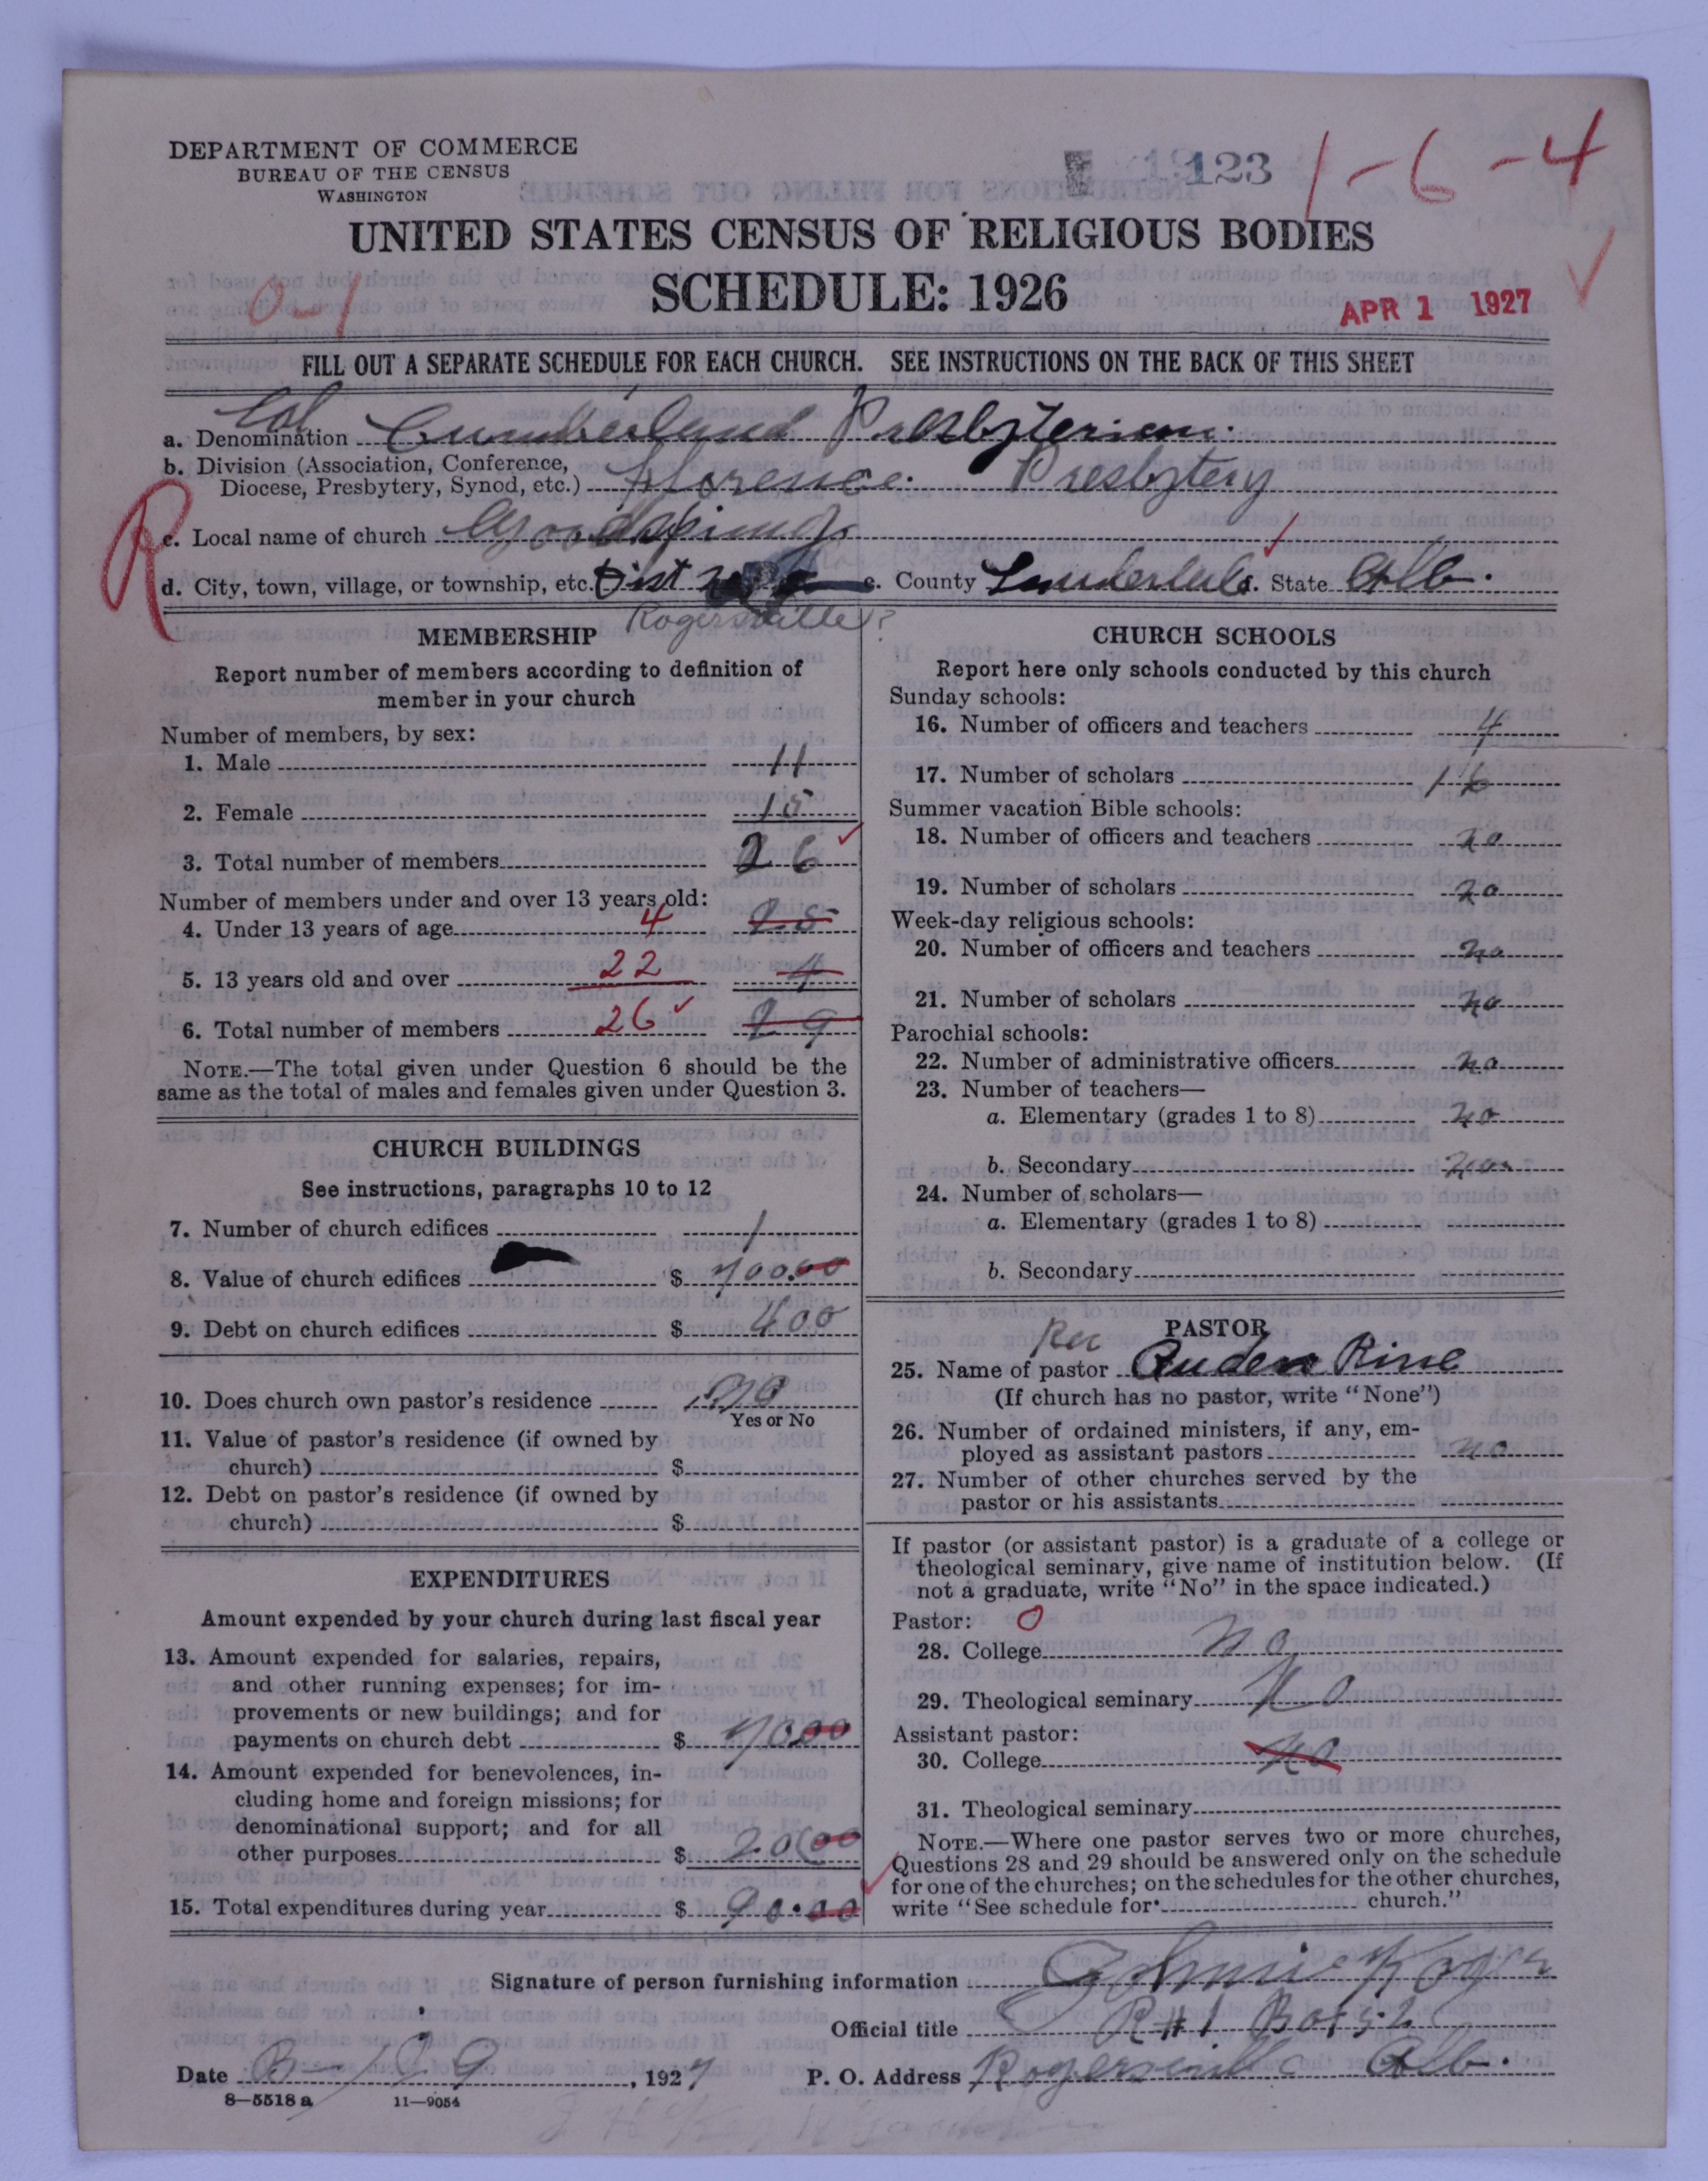 DEPARTMENT OF COMMERCE
BUREAU OF THE CENSUS
WASHINGTON
123
1-6-4
UNITED STATES CENSUS OF RELIGIOUS BODIES
SCHEDULE: 1926
0-1
APR 1 1927
FILL OUT A SEPARATE SCHEDULE FOR EACH CHURCH. SEE INSTRUCTIONS ON THE BACK OF THIS SHEET
Col
a. Denomination Cumberland Presbyterian.
b. Division (Association, Conference,
Diocese, Presbytery, Synod, etc.) Florence. Presbytery
R
c. Local name of church
d. City, town, village, or township, etc. Dist e. County State Alb.
Rogersville?
MEMBERSHIP
Report number of members according to definition of
member in your church
Number of members, by sex:
1. Male 11
2. Female 15
3. Total number of members 26
Number of members under and over 13 years old:
4. Under 13 years of age 4 25
5. 13 years old and over 22 4
6. Total number of members 26 29
NOTE.—The total given under Question 6 should be the
same as the total of males and females given under Question 3.
CHURCH BUILDINGS
See instructions, paragraphs 10 to 12
7. Number of church edifices 1
8. Value of church edifices $ 700.00
9. Debt on church edifices $ 400
10. Does church own pastor's residence no
Yes or No
11. Value of pastor's residence (if owned by
church) $
12. Debt on pastor's residence (if owned by
church) $
EXPENDITURES
Amount expended by your church during last fiscal year
13. Amount expended for salaries, repairs,
and other running expenses; for im-
provements or new buildings; and for
payments on church debt $ 7000
14. Amount expended for benevolences, in-
cluding home and foreign missions; for
denominational support; and for all
other purposes $ 2000
15. Total expenditures during year $ 90.00
CHURCH SCHOOLS
Report here only schools conducted by this church
Sunday schools:
16. Number of officers and teachers 4
17. Number of scholars 16
Summer vacation Bible schools:
18. Number of officers and teachers no
19. Number of scholars no
Week-day religious schools:
20. Number of officers and teachers no
21. Number of scholars no
Parochial schools:
22. Number of administrative officers no
23. Number of teachers—
a. Elementary (grades 1 to 8) no
b. Secondary no
24. Number of scholars—
a. Elementary (grades 1 to 8)
b. Secondary
PASTOR
Rev
25. Name of pastor Auden Rine
(If church has no pastor, write "None")
26. Number of ordained ministers, if any, em-
ployed as assistant pastors no
27. Number of other churches served by the
pastor or his assistants
If pastor (or assistant pastor) is a graduate of a college or
theological seminary, give name of institution below. (If
not a graduate, write "No" in the space indicated.)
Pastor: 0
28. College no
29. Theological seminary No
Assistant pastor:
30. College No
31. Theological seminary
NOTE.—Where one pastor serves two or more churches,
Questions 28 and 29 should be answered only on the schedule
for one of the churches; on the schedules for the other churches,
write "See schedule for church."
Signature of person furnishing information
Official title R#1 Box 52
Date , 1927 P. O. Address Rogersville Alb.
8—5518 a 11—9054